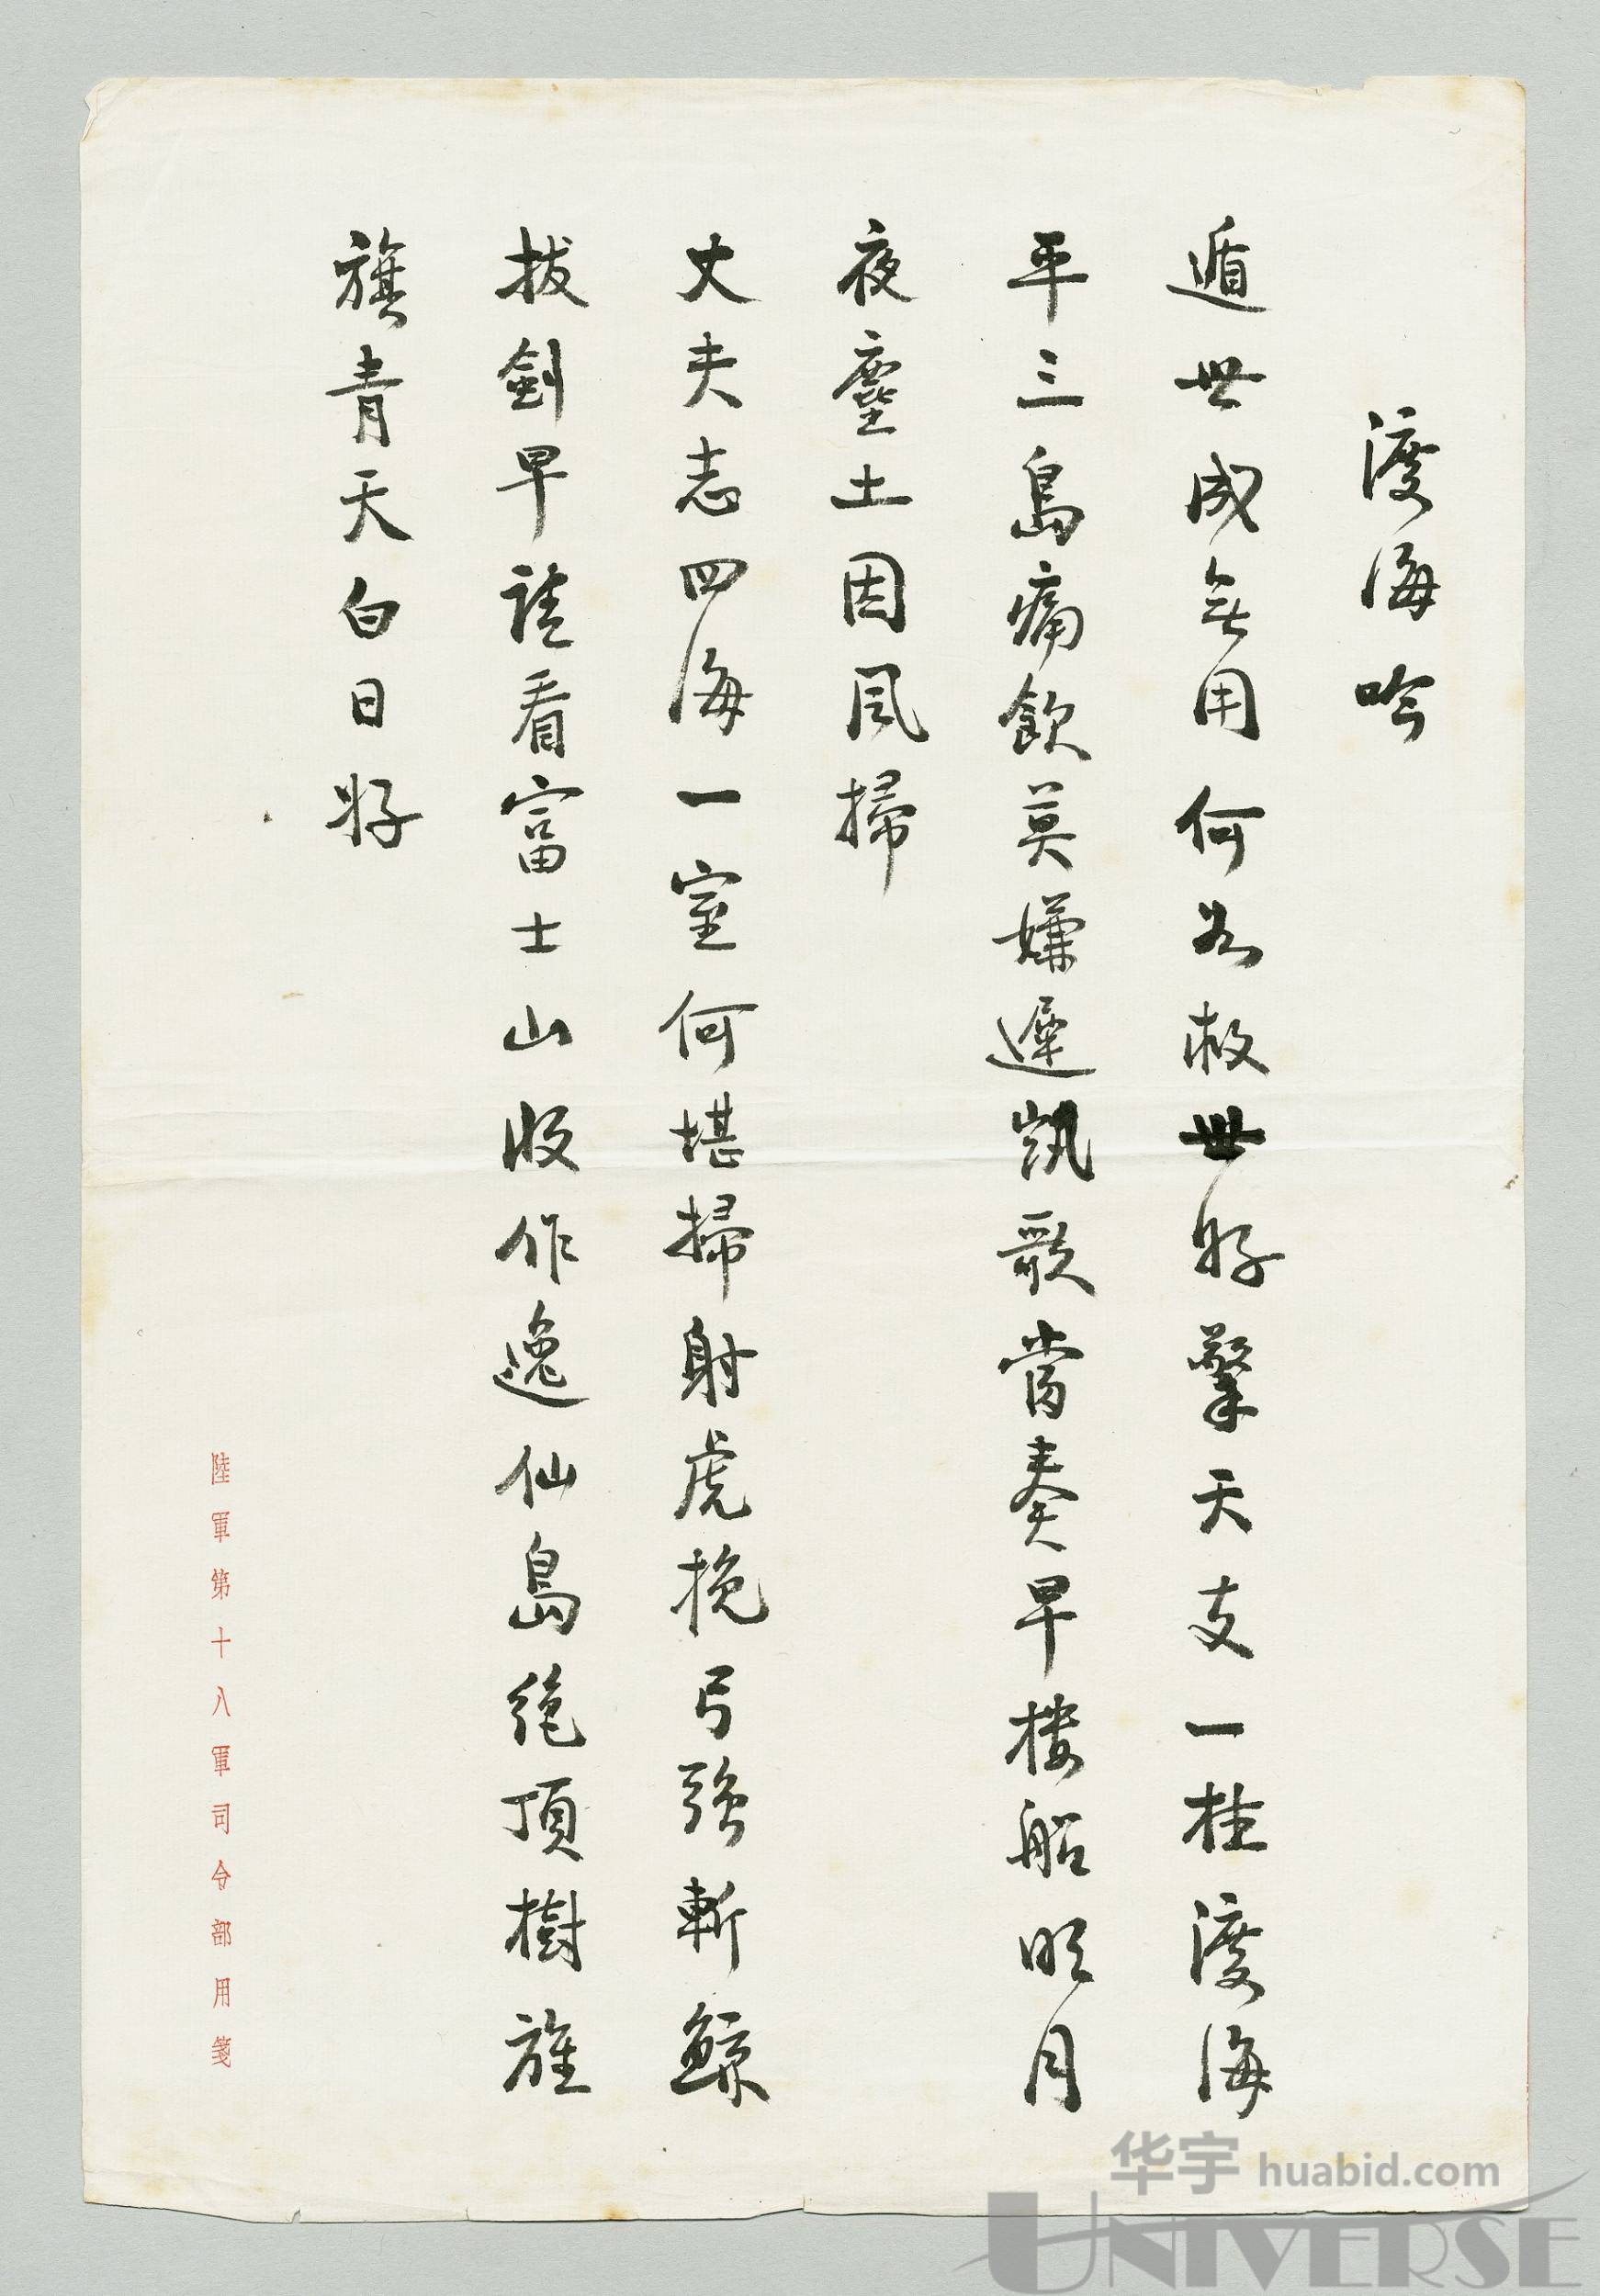 渡海吟
遁世成無用何如救世好擎天支一柱渡海
平三島痛飲莫嫌遲凱歌當奏早樓船明月
夜塵土因風掃
丈夫志四海一室何堪掃射虎挽弓強斬鯨
拔劍早請看富士山收作逸仙島絕頂樹旌
旗青天白日好
陸軍第十八軍司令部用箋
华宇 huabid.com
UNIVERSE